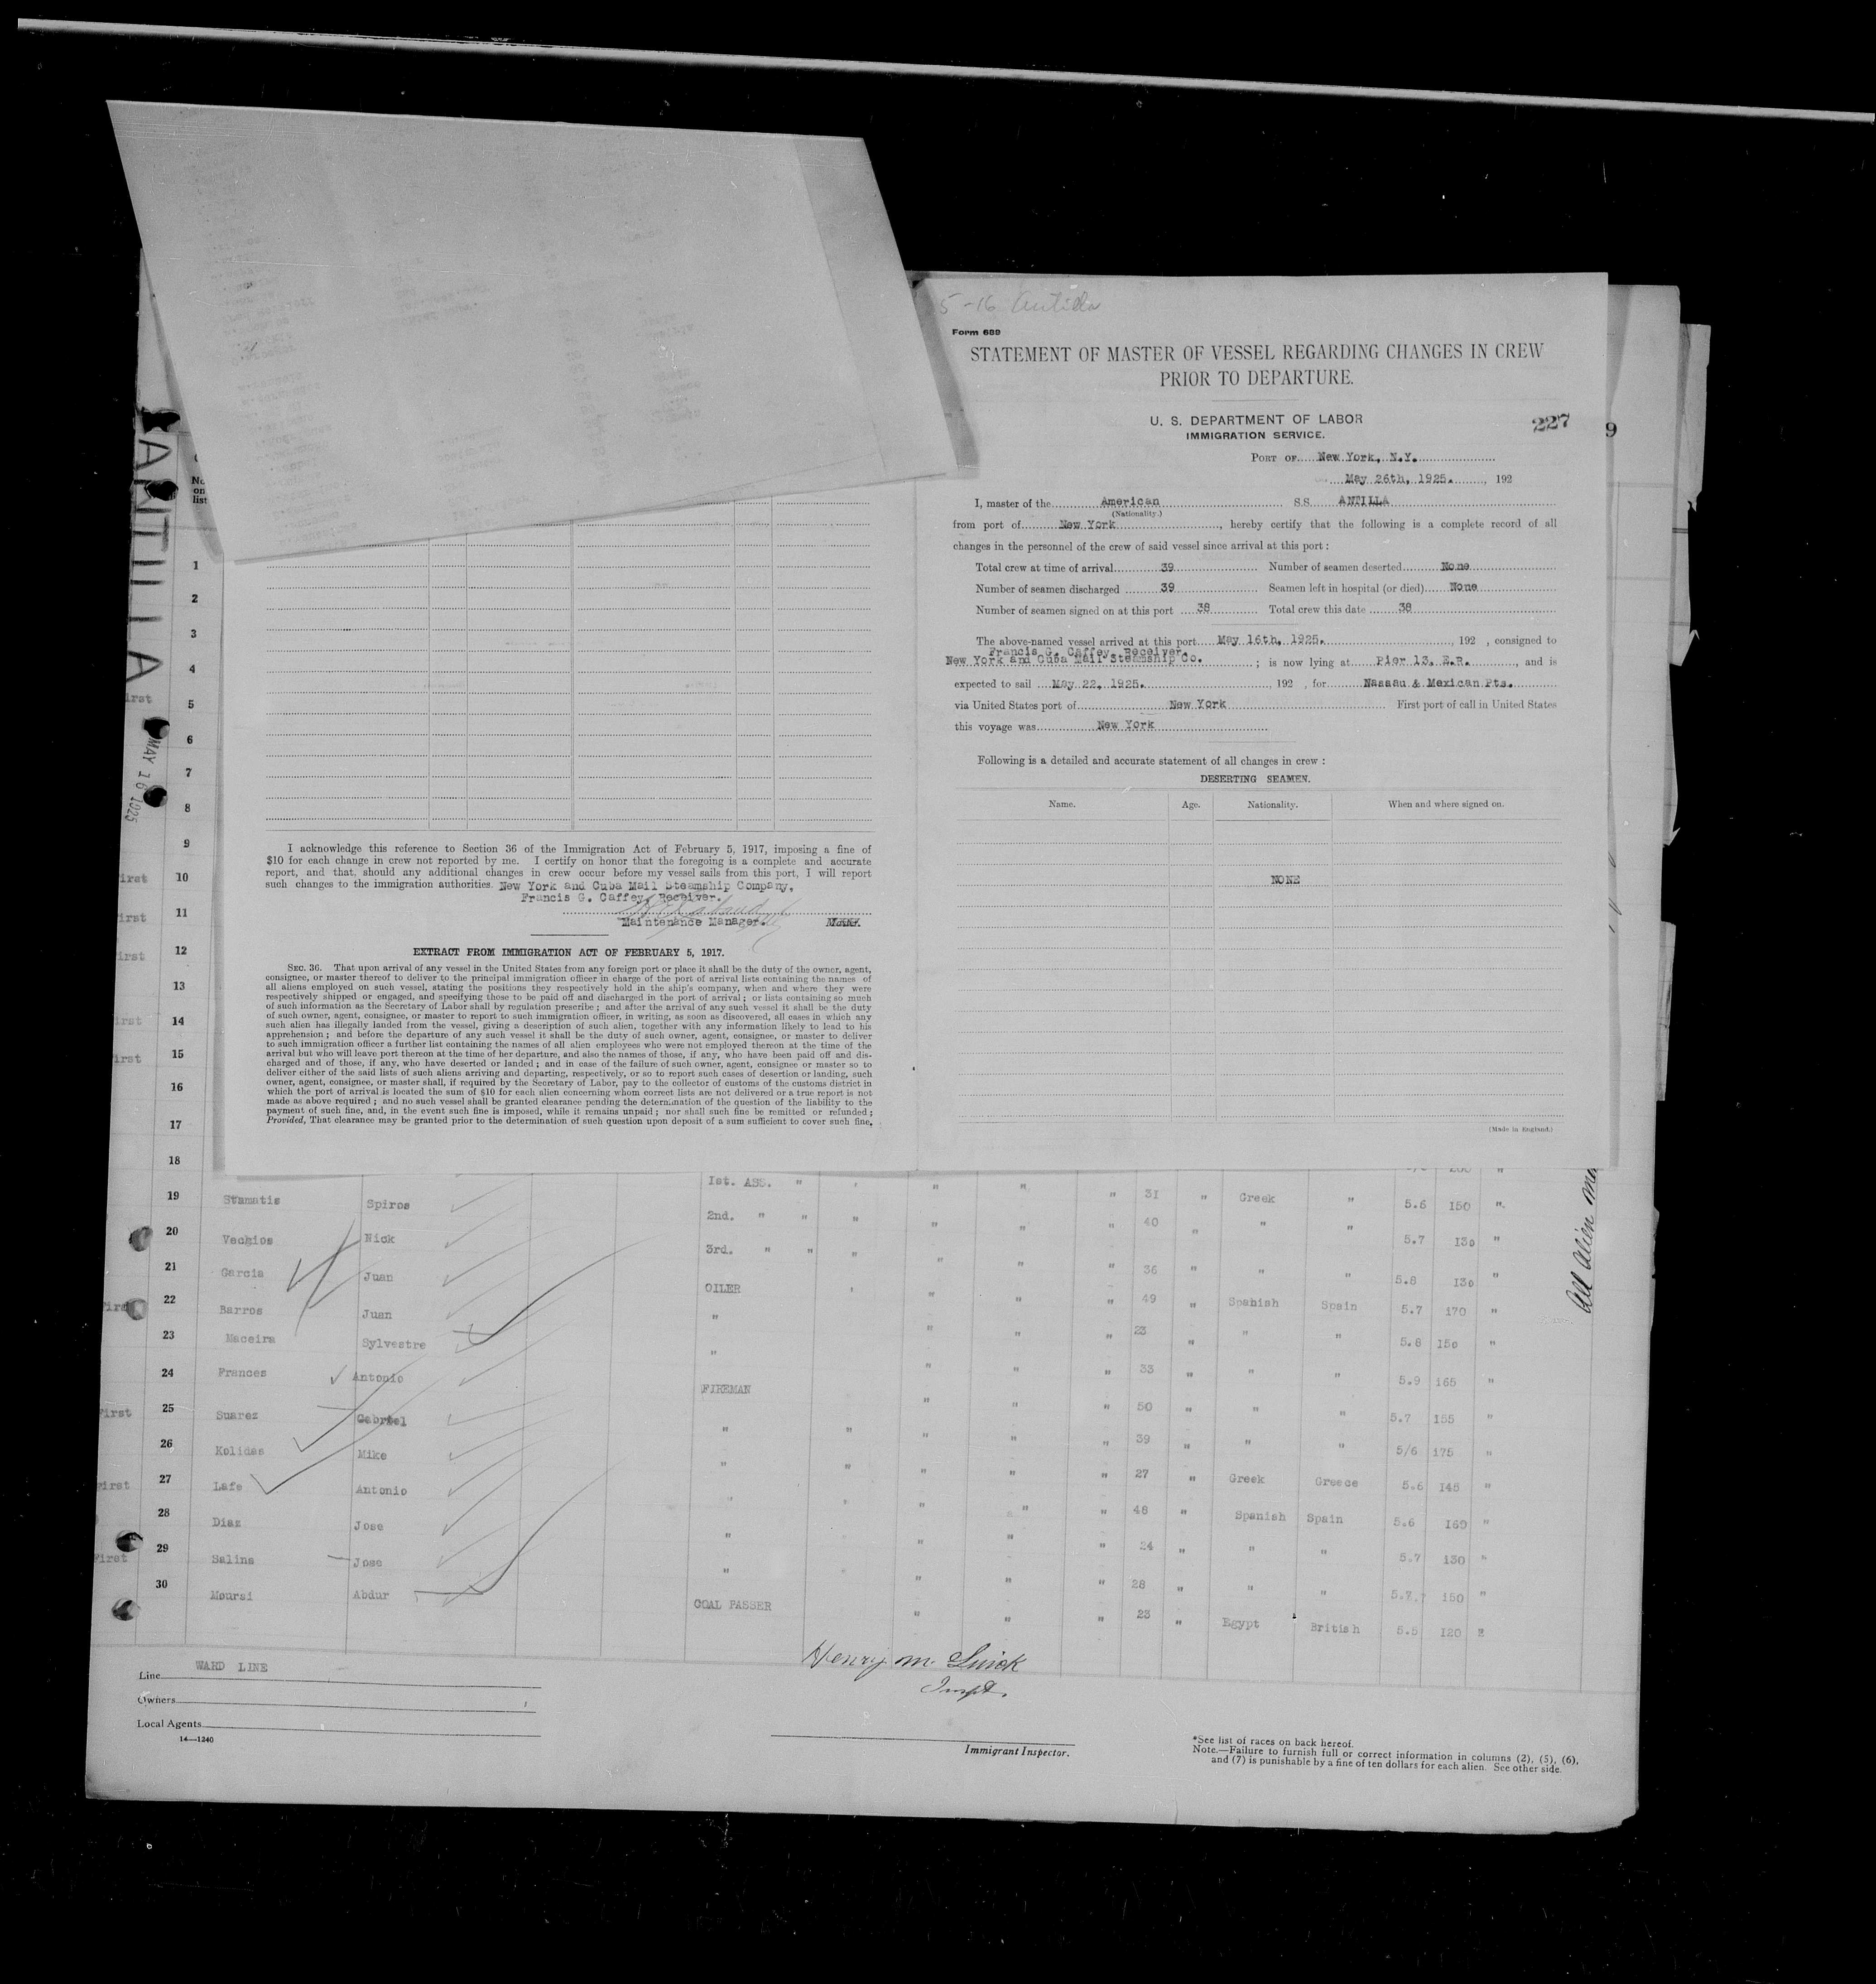 5-16 Antilla
Form 689
STATEMENT OF MASTER OF VESSEL REGARDING CHANGES IN CREW
PRIOR TO DEPARTURE.
U. S. DEPARTMENT OF LABOR
IMMIGRATION SERVICE.
227
9
PORT OF New York, N.Y.
May 26th, 1925. , 192
I, master of the American S.S. ANTILLA
(Nationality.)
from port of New York , hereby certify that the following is a complete record of all
changes in the personnel of the crew of said vessel since arrival at this port :
Total crew at time of arrival 39 Number of seamen deserted None
Number of seamen discharged 39 Seamen left in hospital (or died) None
Number of seamen signed on at this port 38 Total crew this date 38
The above-named vessel arrived at this port May 16th, 1925. , 192 , consigned to
Francis G. Caffey, Receiver.
New York and Cuba Mail Steamship Co. ; is now lying at Pier 13, E.R. , and is
expected to sail May 22, 1925. , 192 , for Nassau & Mexican Pts.
via United States port of New York First port of call in United States
this voyage was New York
Following is a detailed and accurate statement of all changes in crew :
DESERTING SEAMEN.
Name. Age. Nationality. When and where signed on.
NONE
(Made in England.)
ANTILLA
MAY 16 1925
No.
on
list
1
2
3
4
5
6
7
8
9
10
11
12
13
14
15
16
17
18
I acknowledge this reference to Section 36 of the Immigration Act of February 5, 1917, imposing a fine of
$10 for each change in crew not reported by me. I certify on honor that the foregoing is a complete and accurate
report, and that, should any additional changes in crew occur before my vessel sails from this port, I will report
such changes to the immigration authorities. New York and Cuba Mail Steamship Company,
Francis G. Caffey, Receiver.
Maintenance Manager. Master.
EXTRACT FROM IMMIGRATION ACT OF FEBRUARY 5, 1917.
SEC. 36. That upon arrival of any vessel in the United States from any foreign port or place it shall be the duty of the owner, agent,
consignee, or master thereof to deliver to the principal immigration officer in charge of the port of arrival lists containing the names of
all aliens employed on such vessel, stating the positions they respectively hold in the ship's company, when and where they were
respectively shipped or engaged, and specifying those to be paid off and discharged in the port of arrival ; or lists containing so much
of such information as the Secretary of Labor shall by regulation prescribe ; and after the arrival of any such vessel it shall be the duty
of such owner, agent, consignee, or master to report to such immigration officer, in writing, as soon as discovered, all cases in which any
such alien has illegally landed from the vessel, giving a description of such alien, together with any information likely to lead to his
apprehension ; and before the departure of any such vessel it shall be the duty of such owner, agent, consignee, or master to deliver
to such immigration officer a further list containing the names of all alien employees who were not employed thereon at the time of the
arrival but who will leave port thereon at the time of her departure, and also the names of those, if any, who have been paid off and dis-
charged and of those, if any, who have deserted or landed ; and in case of the failure of such owner, agent, consignee or master so to
deliver either of the said lists of such aliens arriving and departing, respectively, or so to report such cases of desertion or landing, such
owner, agent, consignee, or master shall, if required by the Secretary of Labor, pay to the collector of customs of the customs district in
which the port of arrival is located the sum of $10 for each alien concerning whom correct lists are not delivered or a true report is not
made as above required ; and no such vessel shall be granted clearance pending the determination of the question of the liability to the
payment of such fine, and, in the event such fine is imposed, while it remains unpaid ; nor shall such fine be remitted or refunded ;
Provided, That clearance may be granted prior to the determination of such question upon deposit of a sum sufficient to cover such fine.
19 Stamatis Spiros 1st. ASS. " " " " " 31 " Greek " 5.6 150 "
20 Vachios Nick 2nd. " " " " " " 40 " " " 5.7 130 "
21 Garcia Juan 3rd. " " " " " " 36 " " " 5.8 130 "
22 Barros Juan OILER " " " " 49 " Spanish Spain 5.7 170 "
23 Maceira Sylvestre " " " " 23 " " " 5.8 150 "
24 Frances Antonio " " " " 33 " " " 5.9 165 "
25 Suarez Gabriel FIREMAN " " " 50 " " " 5.7 155 "
26 Kolidas Mike " " " " " 39 " " " 5/6 175 "
27 Lafe Antonio " " " " " 27 " Greek Greece 5.6 145 "
28 Diaz Jose " " " " " 48 " Spanish Spain 5.6 160 "
29 Salins Jose " " " " 24 " " " 5.7 130 "
30 Moursi Abdur " " " " 28 " " " 5.7. 150 "
COAL PASSER " " " 23 " Egypt British 5.5 120
First
First
First
All alien
Line WARD LINE
Owners
Local Agents
14—1240
Henry M.
Inspt.
Immigrant Inspector.
*See list of races on back hereof.
Note.—Failure to furnish full or correct information in columns (2), (5), (6),
and (7) is punishable by a fine of ten dollars for each alien. See other side.